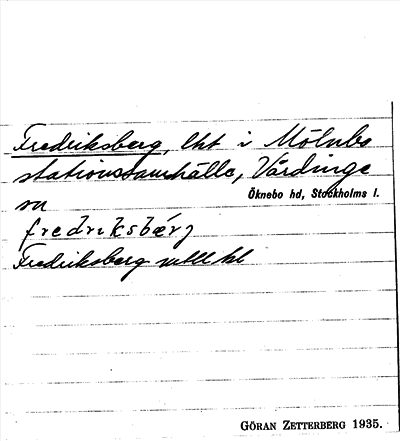 Fredriksberg, lht i Mölnbo
stationssamhälle, Vårdinge
sn Öknebo hd, Stockholms l.
fredriksbærj
Fredriksberg
GÖRAN ZETTERBERG 1935.